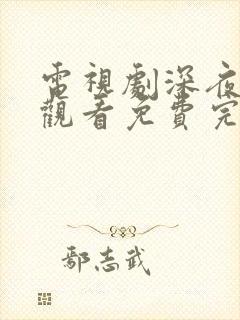 電視劇深夜
觀看免費完
鄢志武